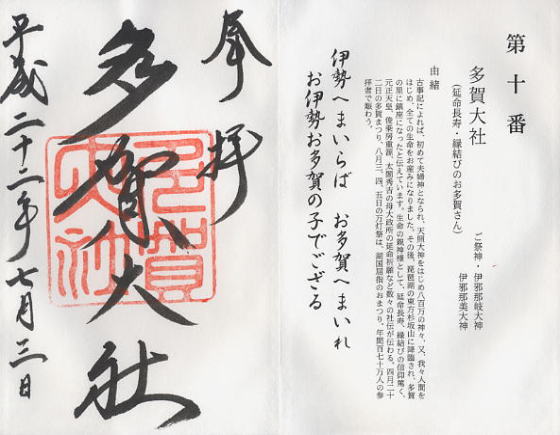 第十番
多賀大社
(延命長寿・縁結びのお多賀さん)
ご祭神・伊邪那岐大神
伊邪那美大神
由緒
古事記によれば、初めて夫婦神となられ、天照大神をはじめ八百万の神々、又、我々人間を
はじめ、全ての生命をお産みになりました。その後、琵琶湖の東方杉坂山に降臨され、多賀
の里に鎮座になったと伝えています。生命の親神様として、延命長寿、縁結びの信仰篤く、
元正天皇、俊乗房重源、太閤秀吉の母大政所の延命祈願など数々の社伝が伝わる。四月二十
二日の多賀まつり、八月三、四、五日の万灯祭は、湖国屈指のおまつり、年間百七十万人の参
拝者で賑わう。
伊勢へまいらば お多賀へまいれ
お伊勢お多賀の子でござる
奉拝
多賀大社
多賀大社
平成二十二年七月三日